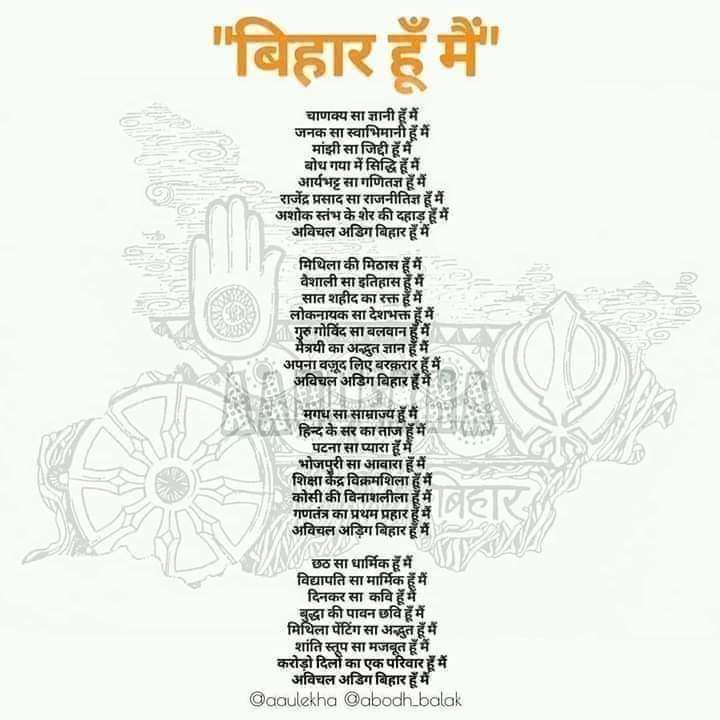 "बिहार हूँ मैं"
चाणक्य सा ज्ञानी हूँ मैं
जनक सा स्वाभिमानी हूँ मैं
मांझी सा जिद्दी हूँ मैं
बोध गया में सिद्धि हूँ मैं
आर्यभट्ट सा गणितज्ञ हूँ मैं
राजेंद्र प्रसाद सा राजनीतिज्ञ हूँ मैं
अशोक स्तंभ के शेर की दहाड़ हूँ मैं
अविचल अडिग बिहार हूँ मैं
मिथिला की मिठास हूँ मैं
वैशाली सा इतिहास हूँ मैं
सात शहीद का रक्त हूँ मैं
लोकनायक सा देशभक्त हूँ मैं
गुरु गोविंद सा बलवान हूँ मैं
मैत्रयी का अद्भुत ज्ञान हूँ मैं
अपना वज़ूद लिए बरक़रार हूँ मैं
अविचल अडिग बिहार हूँ मैं
मगध सा साम्राज्य हूँ मैं
हिन्द के सर का ताज हूँ मैं
पटना सा प्यारा हूँ मैं
भोजपुरी सा आवारा हूँ मैं
शिक्षा केंद्र विक्रमशिला हूँ मैं
कोसी की विनाशलीला हूँ मैं
गणतंत्र का प्रथम प्रहार हूँ मैं
अविचल अड़िग बिहार हूँ मैं
छठ सा धार्मिक हूँ मैं
विद्यापति सा मार्मिक हूँ मैं
दिनकर सा कवि हूँ मैं
बुद्धा की पावन छवि हूँ मैं
मिथिला पेंटिंग सा अद्भुत हूँ मैं
शांति स्तूप सा मजबूत हूँ मैं
करोड़ो दिलों का एक परिवार हूँ मैं
अविचल अडिग बिहार हूँ मैं
@aaulekha @abodh_balak
AAULEKHA
बिहार